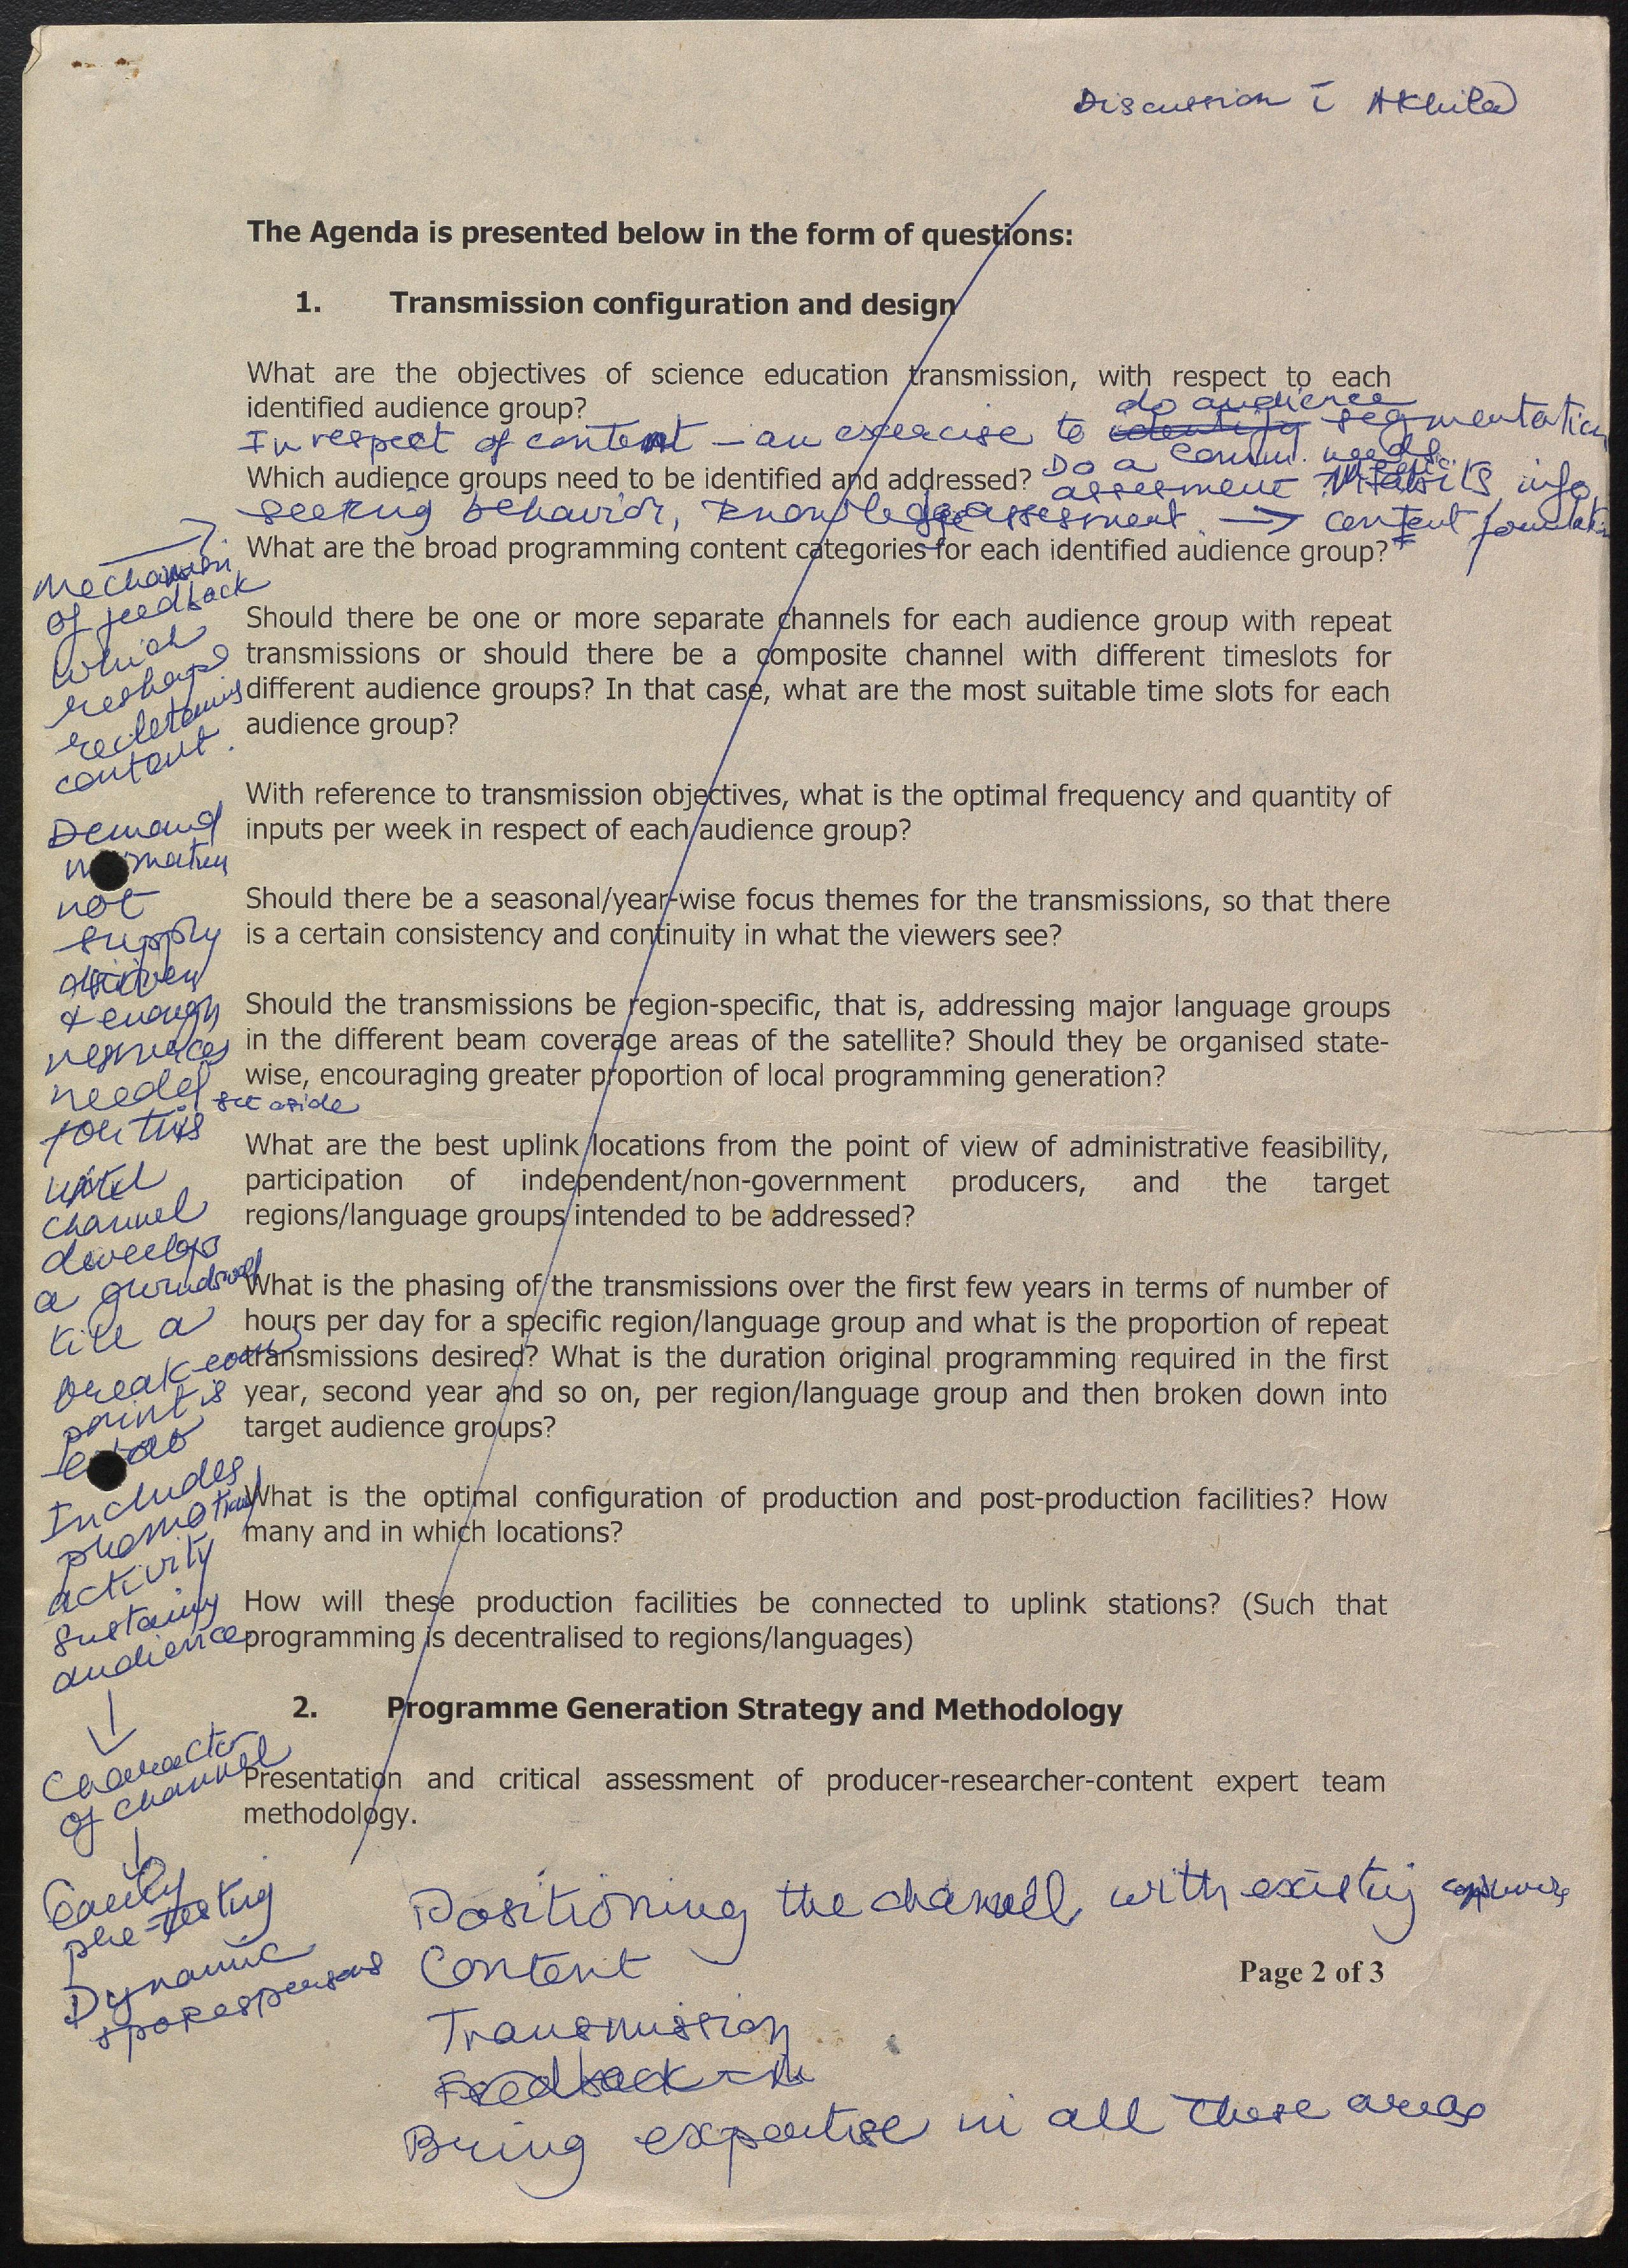 Discussion c̄ Akhila
The Agenda is presented below in the form of questions:
1. Transmission configuration and design
What are the objectives of science education transmission, with respect to each
identified audience group?
do audience
In respect of content – an exercise to identify segmentation
Which audience groups need to be identified and addressed? Do a Comm. needs
assesment habits, info
seeking behavior, knowledge assesment → content
What are the broad programming content categories for each identified audience group?
Should there be one or more separate channels for each audience group with repeat
transmissions or should there be a composite channel with different timeslots for
different audience groups? In that case, what are the most suitable time slots for each
audience group?
With reference to transmission objectives, what is the optimal frequency and quantity of
inputs per week in respect of each audience group?
Should there be a seasonal/year-wise focus themes for the transmissions, so that there
is a certain consistency and continuity in what the viewers see?
Should the transmissions be region-specific, that is, addressing major language groups
in the different beam coverage areas of the satellite? Should they be organised state-
wise, encouraging greater proportion of local programming generation?
What are the best uplink locations from the point of view of administrative feasibility,
participation of independent/non-government producers, and the target
regions/language groups intended to be addressed?
What is the phasing of the transmissions over the first few years in terms of number of
hours per day for a specific region/language group and what is the proportion of repeat
transmissions desired? What is the duration original programming required in the first
year, second year and so on, per region/language group and then broken down into
target audience groups?
What is the optimal configuration of production and post-production facilities? How
many and in which locations?
How will these production facilities be connected to uplink stations? (Such that
programming is decentralised to regions/languages)
2. Programme Generation Strategy and Methodology
Presentation and critical assessment of producer-researcher-content expert team
methodology.
Mechanism
of feedback
which
reshape
content.
Demand
not
supply
driven
& enough
resources
needed set aside
for this
until
channel
develops
a groundswell
till a
break-even
point is
Includes
promotional
activity
sustaining
audience
↓
Character
of channel
↓
Early
pre-testing
Dynamic
spokespersons
Positioning the channel with existing
Content
Transmission
Feedback
Bring expertise in all these areas
Page 2 of 3